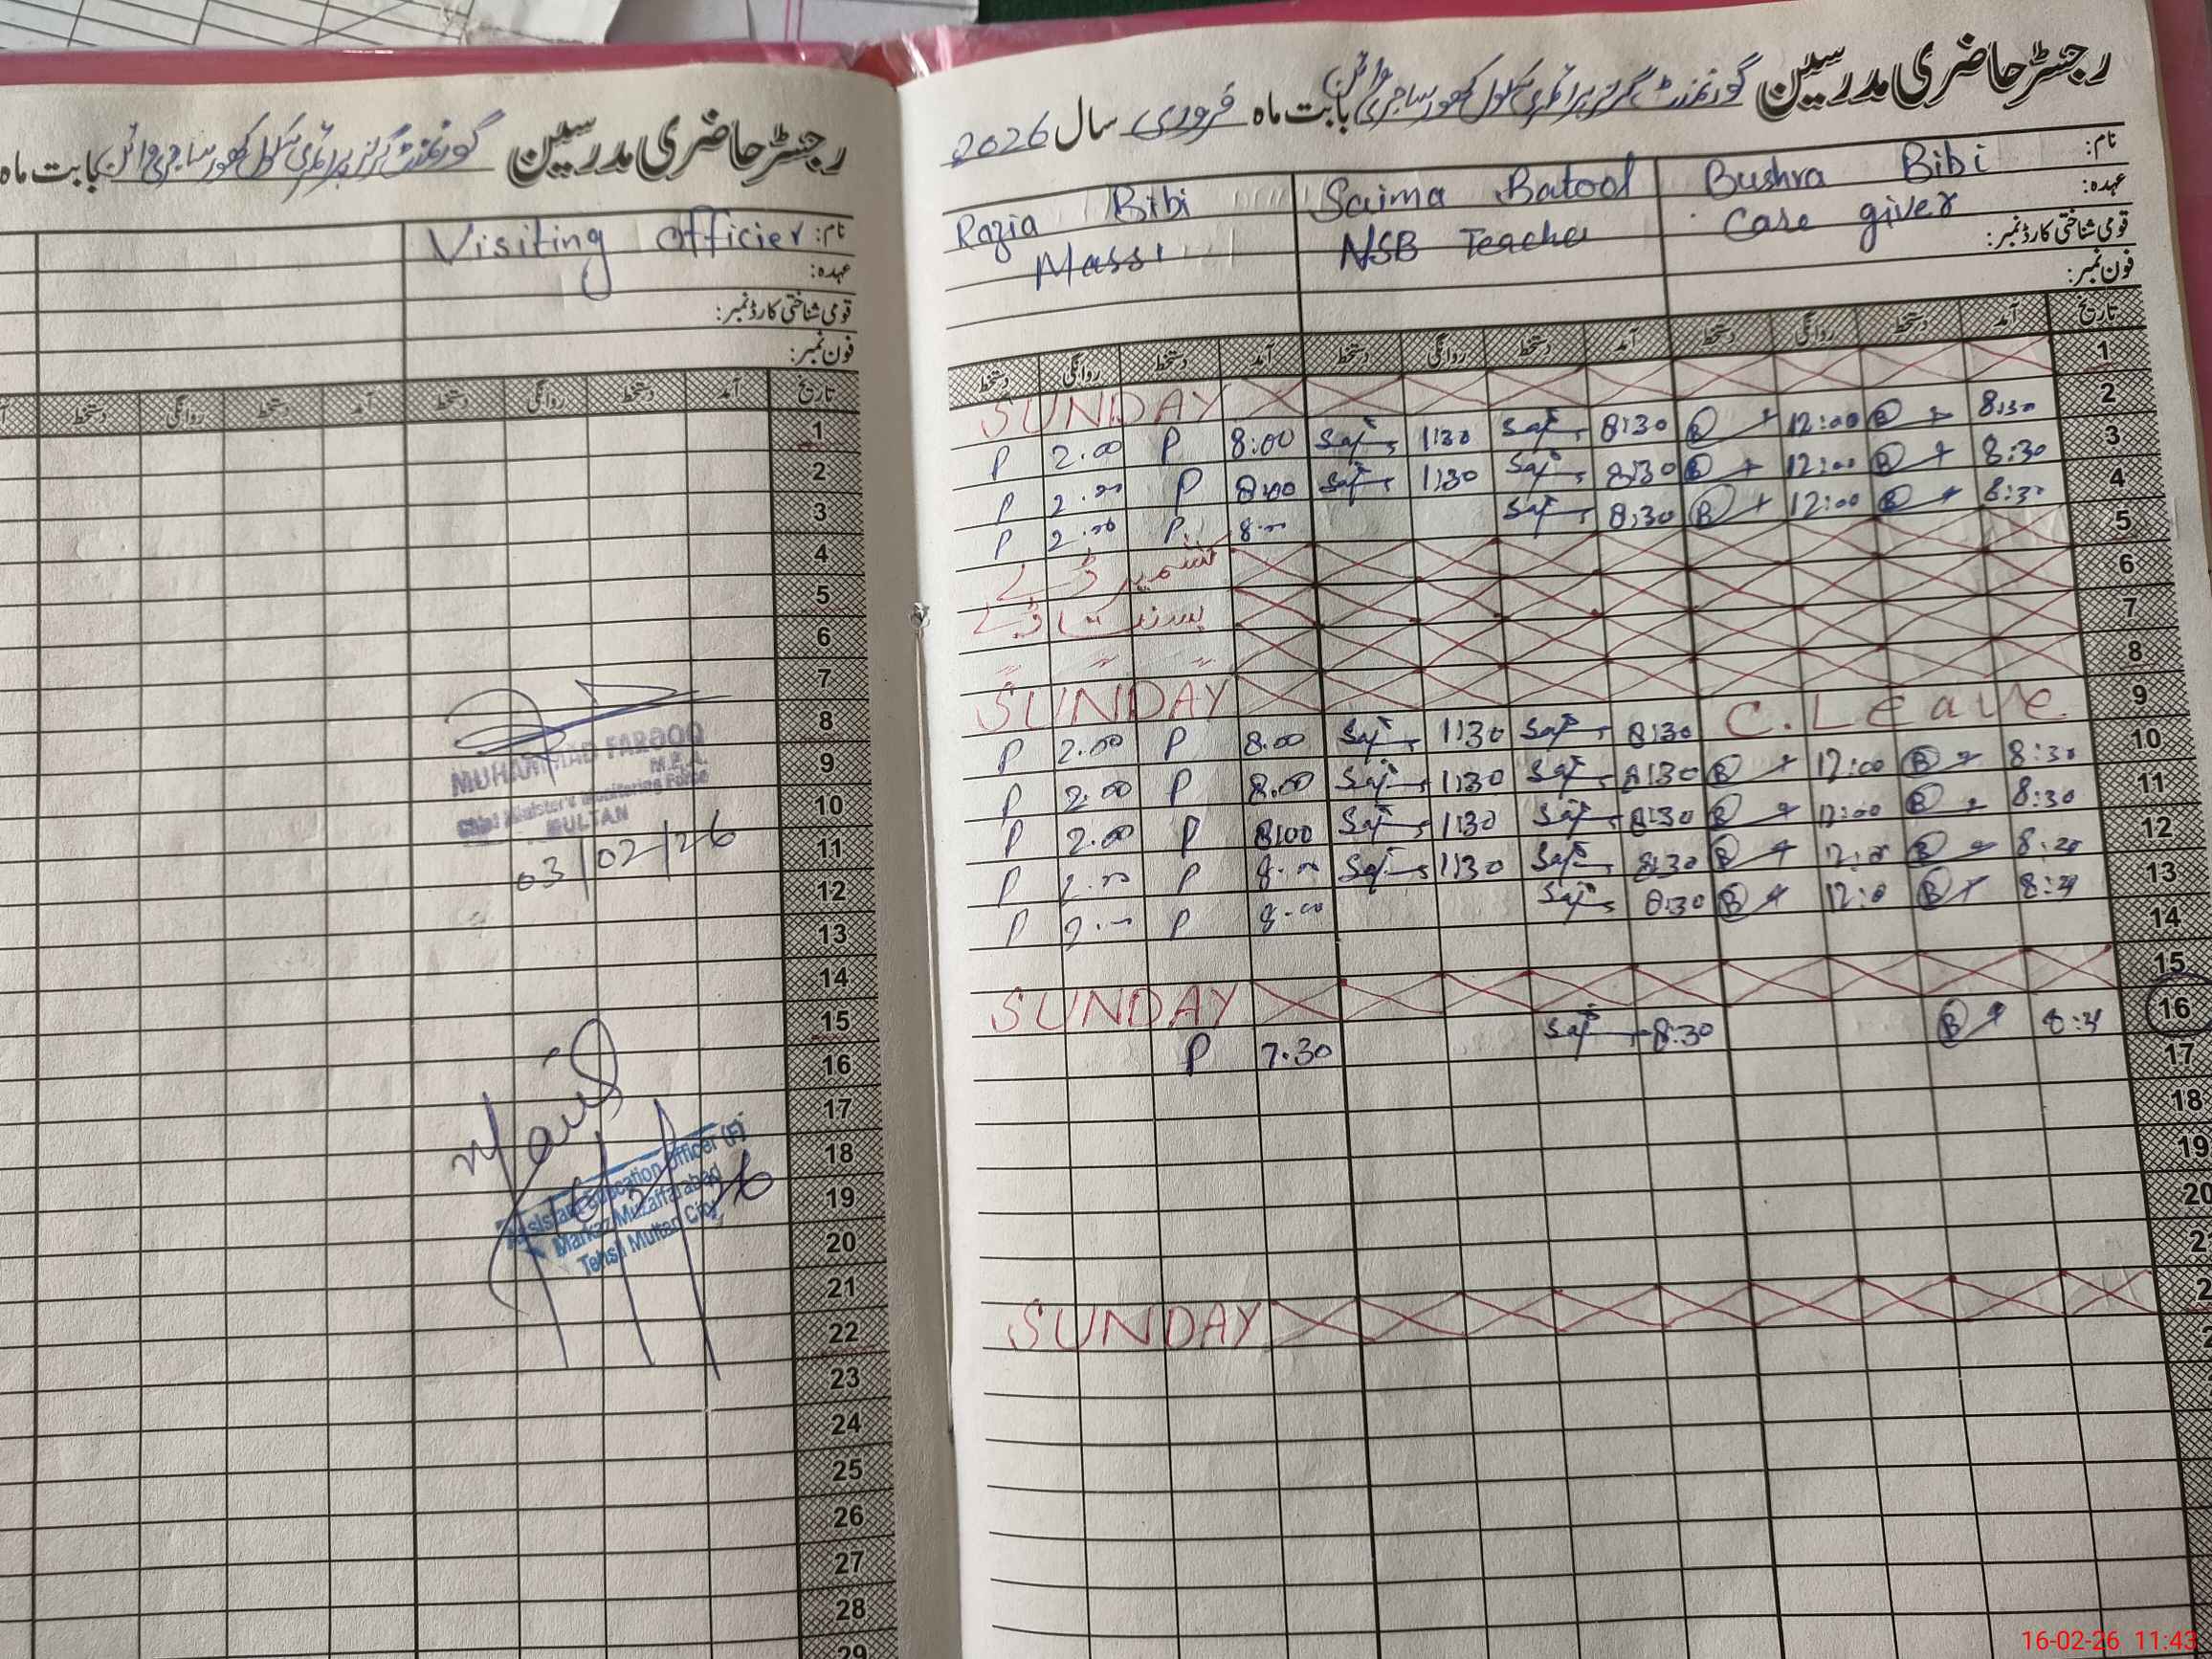 رجسٹر حاضری مدرسین گورنمنٹ گرلز پرائمری سکول بابت ماہ
نام: Visiting officier
عہدہ:
قومی شناختی کارڈ نمبر:
فون نمبر:
تاریخ آمد دستخط روانگی دستخط آمد دستخط روانگی دستخط
1
2
3
4
5
6
7
8
MUHAMMAD FAROOQ
9
M.E.A.
Chief Minister's Monitoring Force
10
MULTAN
11
03/02/26
12
13
14
15
16
17
Assistant Education Officer (F)
18
Markaz Muzaffarabad
19
Tehsil Multan City
20
21
22
23
24
25
26
27
28
29
رجسٹر حاضری مدرسین گورنمنٹ گرلز پرائمری سکول بابت ماہ فروری سال 2026
نام: Bushra Bibi Saima Batool Razia Bibi
عہدہ: Care giver NSB Teacher Massi
قومی شناختی کارڈ نمبر:
فون نمبر:
تاریخ آمد دستخط روانگی دستخط آمد دستخط روانگی دستخط آمد دستخط روانگی دستخط
1 SUNDAY
2 8:30 B 12:00 B 8:30 1:30 8:00 P 2.00 P
3 8:30 B 12:00 B 8:30 1:30 8:00 P 2.00 P
4 8:30 B 12:00 B 8:30 8.00 P 2.00 P
5 کشمیر ڈے
6 بسنت ڈے
7 " " "
8 SUNDAY
9 C. Leave 8:30 1:30 8.00 P 2.00 P
10 8:30 B 12:00 B 8:30 1:30 8.00 P 2.00 P
11 8:30 B 12:00 B 8:30 1:30 8:00 P 2.00 P
12 B B 8:30 1:30 P P
13 B B 8:30 P P
14
15 SUNDAY
16 B 8:30 7.30 P
17
18
19
20
SUNDAY
16-02-26 11:43